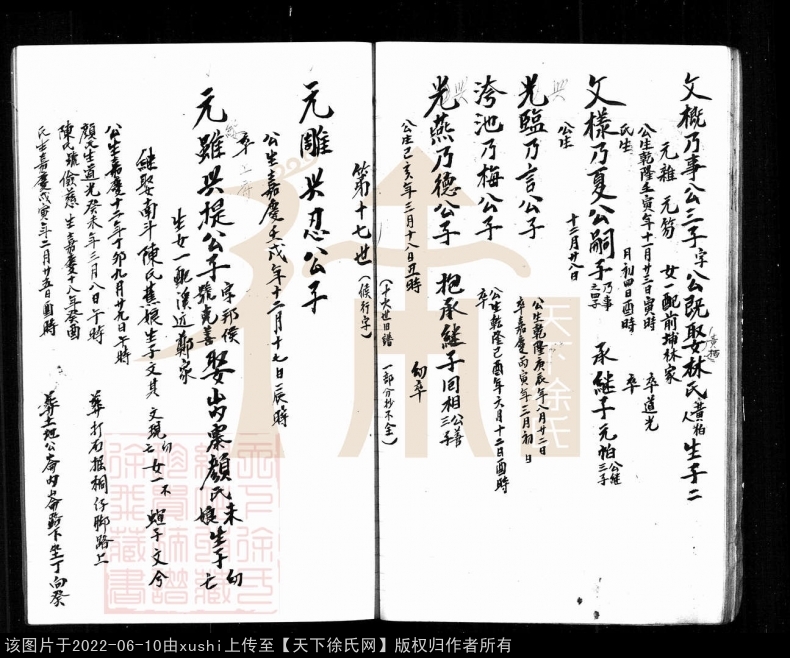 文概乃事公三子字公既娶林氏黃柏人生子二
元雅 元笏 女一配前埔林家
公生乾隆壬寅年十一月廿三日寅時 卒道光
氏生 月初四日酉時 卒
文樣乃夏公嗣子乃事之四子 承継子元怕公継三子
公生 十二月廿八日
光臨乃言公子
公生乾隆庚辰年八月廿二日
卒嘉慶丙寅年三月初 日
洿池乃梅公子
公生乾隆己酉年六月十二日酉時
卒
光燕乃德公子 抱承継子同相公善三子
公生己亥年三月十八日丑時 幼卒
第十七世(候行字)
(十六世旧譜一部分抄不全)
元雕興忍公子
公生嘉慶壬戌年十二月十七日辰時
卒
元雖興提公子字邦侯號克善娶山内寨顏氏未娘生子幼七
生女一配溪近鄭家
継娶南斗陳氏蕉娘生子文其 文現幼七 女一不 螟子文今
公生嘉慶十二年丁卯九月廿九日午時 葬打石掘桐仔脚路上
顏氏生道光癸未年三月八日午時
陳氏號儉慈生嘉慶十八年癸酉
氏生嘉慶戊寅年二月廿五日酉時 葬土地公崙内崙路下坐丁向癸
天下徐氏
该图片于2022-06-10由xushi上传至【天下徐氏网】版权归作者所有